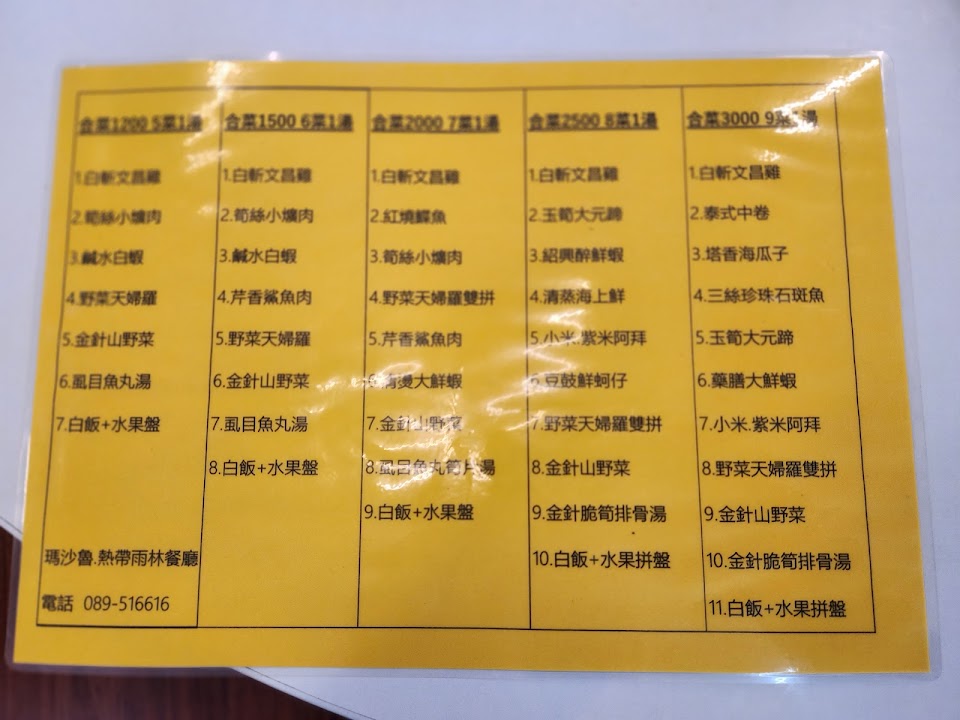 合菜1200 5菜1湯
1.白斬文昌雞
2.筍絲小爌肉
3.鹹水白蝦
4.野菜天婦羅
5.金針山野菜
6.虱目魚丸湯
7.白飯+水果盤
瑪沙魯.熱帶雨林餐廳
電話 089-516616
合菜1500 6菜1湯
1.白斬文昌雞
2.筍絲小爌肉
3.鹹水白蝦
4.芹香鯊魚肉
5.野菜天婦羅
6.金針山野菜
7.虱目魚丸湯
8.白飯+水果盤
合菜2000 7菜1湯
1.白斬文昌雞
2.紅燒鰈魚
3.筍絲小爌肉
4.野菜天婦羅雙拼
5.芹香鯊魚肉
6.清燙大鮮蝦
7.金針山野菜
8.虱目魚丸筍片湯
9.白飯+水果盤
合菜2500 8菜1湯
1.白斬文昌雞
2.玉筍大元蹄
3.紹興醉鮮蝦
4.清蒸海上鮮
5.小米.紫米阿拜
6.豆鼓鮮蚵仔
7.野菜天婦羅雙拼
8.金針山野菜
9.金針脆筍排骨湯
10.白飯+水果拼盤
合菜3000 9菜1湯
1.白斬文昌雞
2.泰式中卷
3.塔香海瓜子
4.三絲珍珠石斑魚
5.玉筍大元蹄
6.藥膳大鮮蝦
7.小米.紫米阿拜
8.野菜天婦羅雙拼
9.金針山野菜
10.金針脆筍排骨湯
11.白飯+水果拼盤